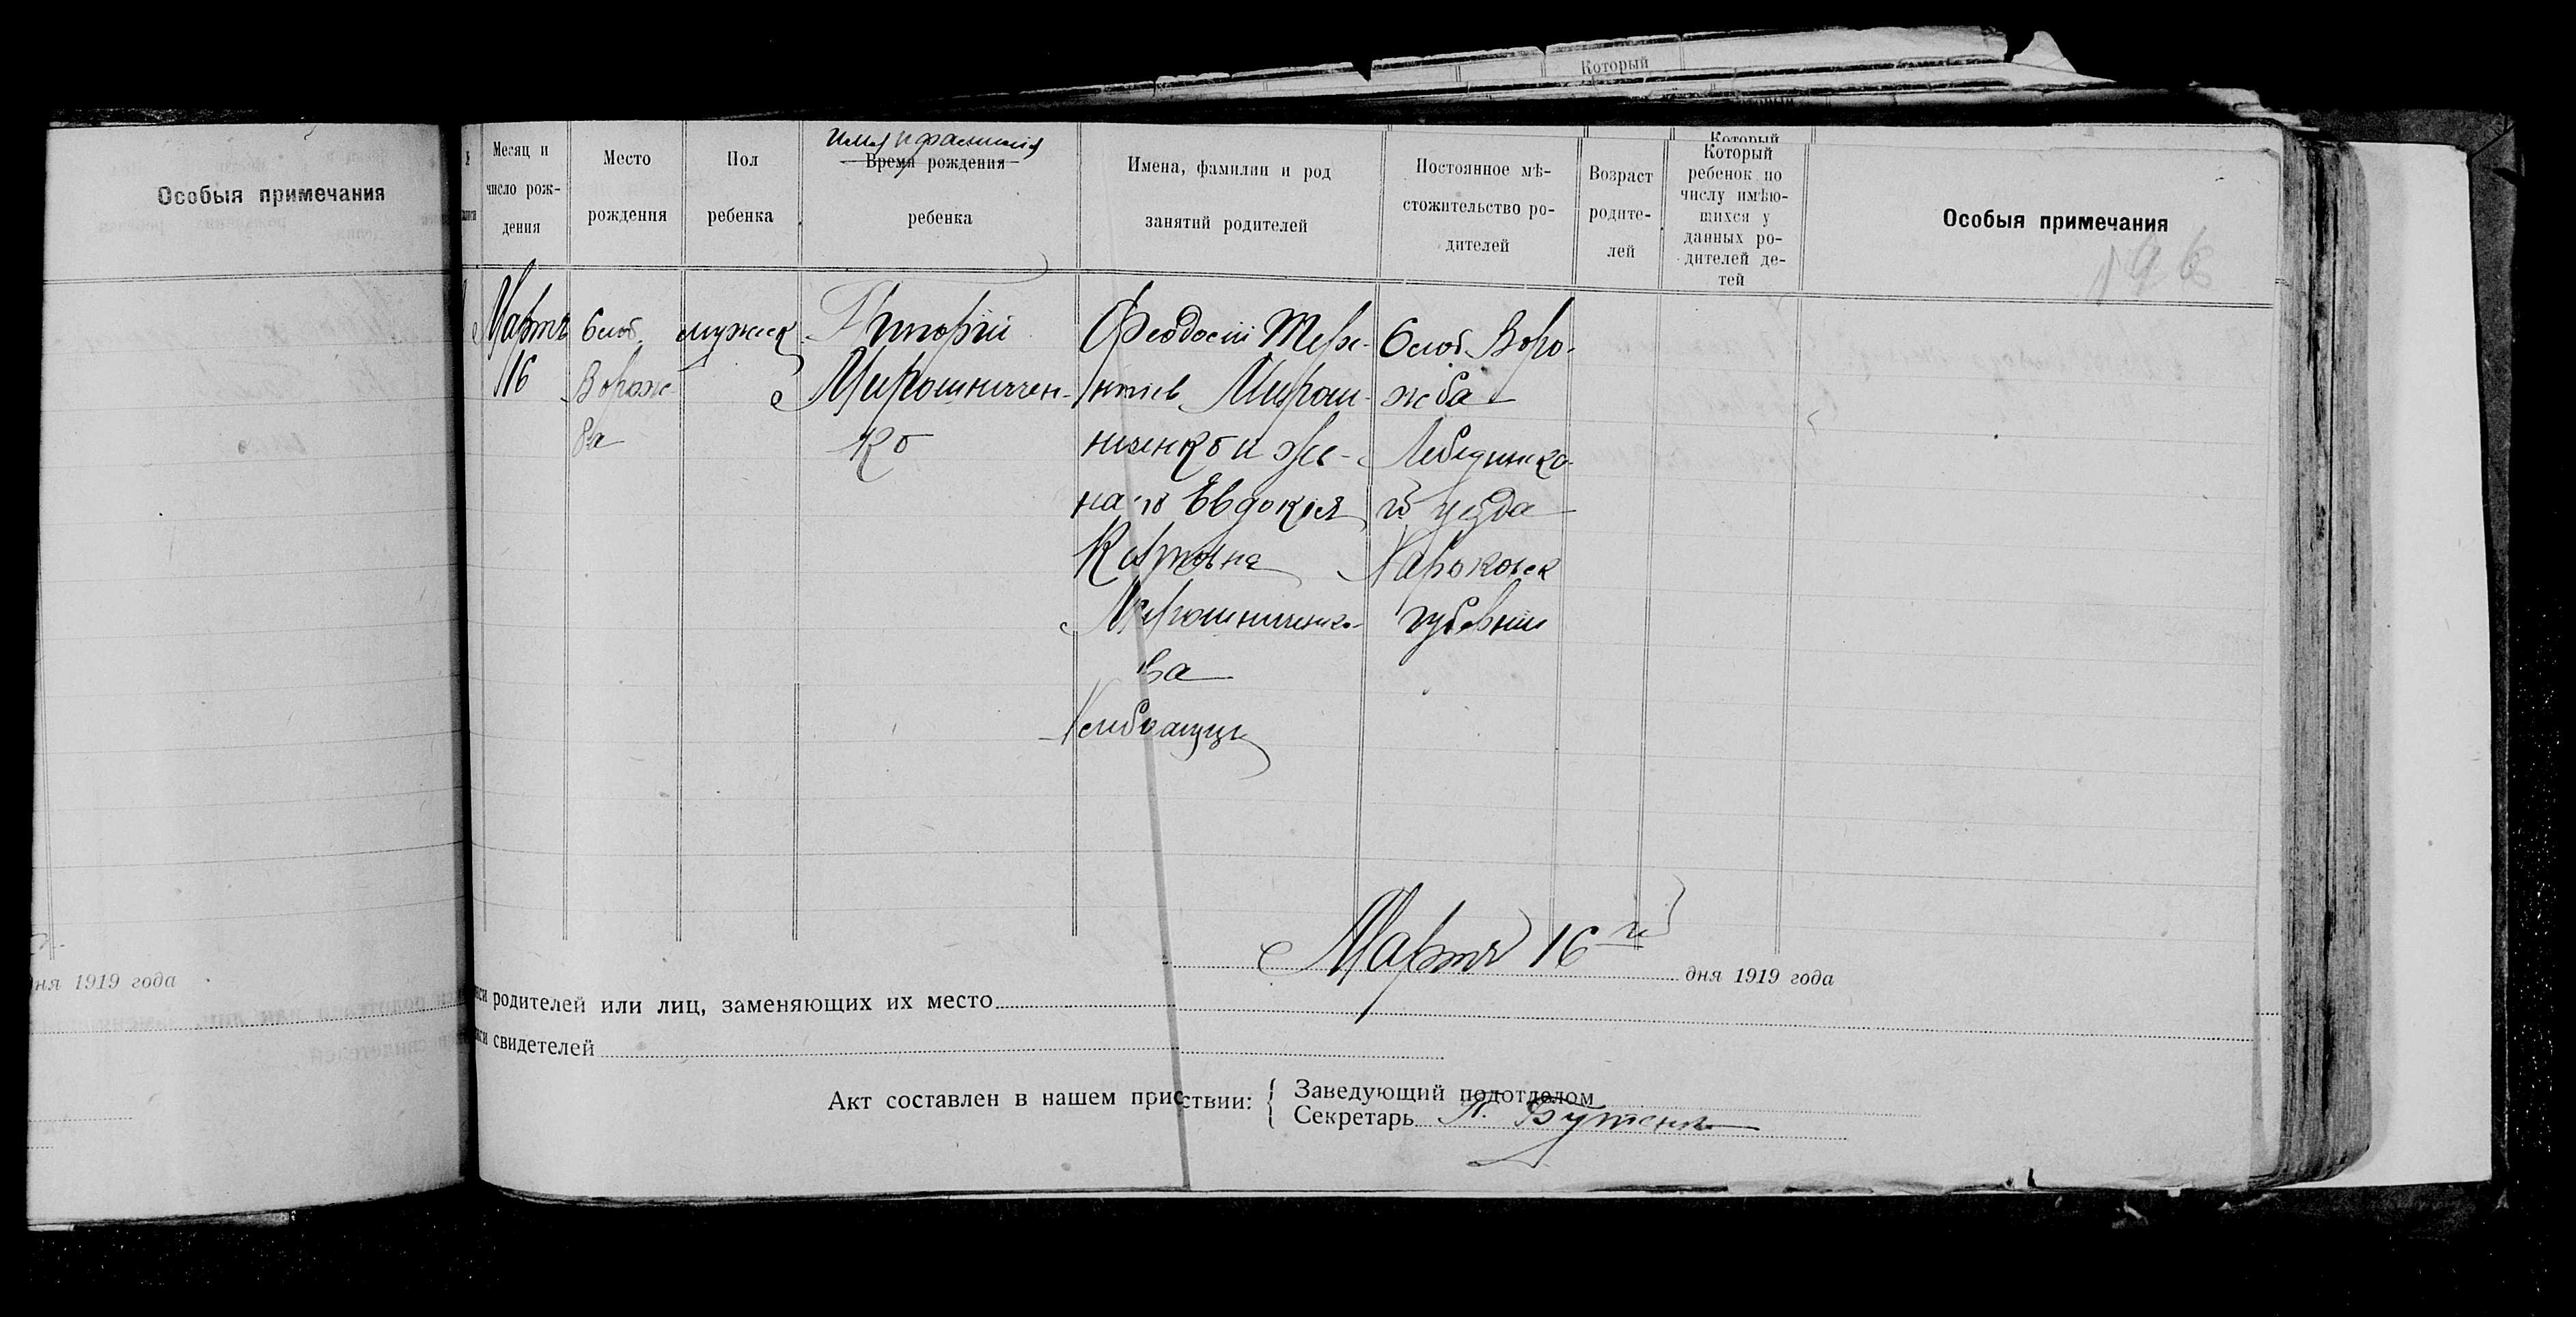 Который
Особыя примечания
Месяц и
число рож-
дения
Место
рождения
Пол
ребенка
имя и фамилия
Время рождения
ребенка
Имена, фамилии и род
занятий родителей
Постоянное мѣ-
стожительство ро-
дителей
Возраст
родите-
лей
Который
Который
ребенок по
числу имѣю-
щихся у
данных ро-
дителей де-
тей
Особыя примечания
196
Мартъ
16
Слоб.
Ворож-
ба
мужск.
Григорій
Мирошничен-
ко
Феодосій Тере-
нтіев Мирош-
ниченко и же-
на его Евдокія
Карповна
Мирошниченко-
ва
Хлебопашцы
Слоб. Воро-
жба
Лебединско-
го уезда
Харьковск
губернии
Мартъ 16 го дня 1919 года
дня 1919 года
родителей или лиц, заменяющих их место
свидетелей
Акт составлен в нашем присутствии:
Заведующий подотделом
Секретарь